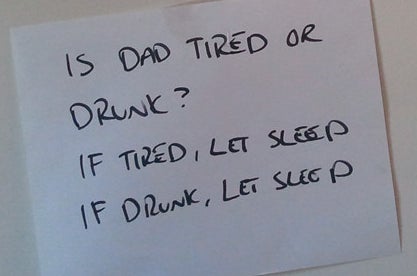 IS DAD TIRED OR
DRUNK?
IF TIRED, LET SLEEP
IF DRUNK, LET SLEEP